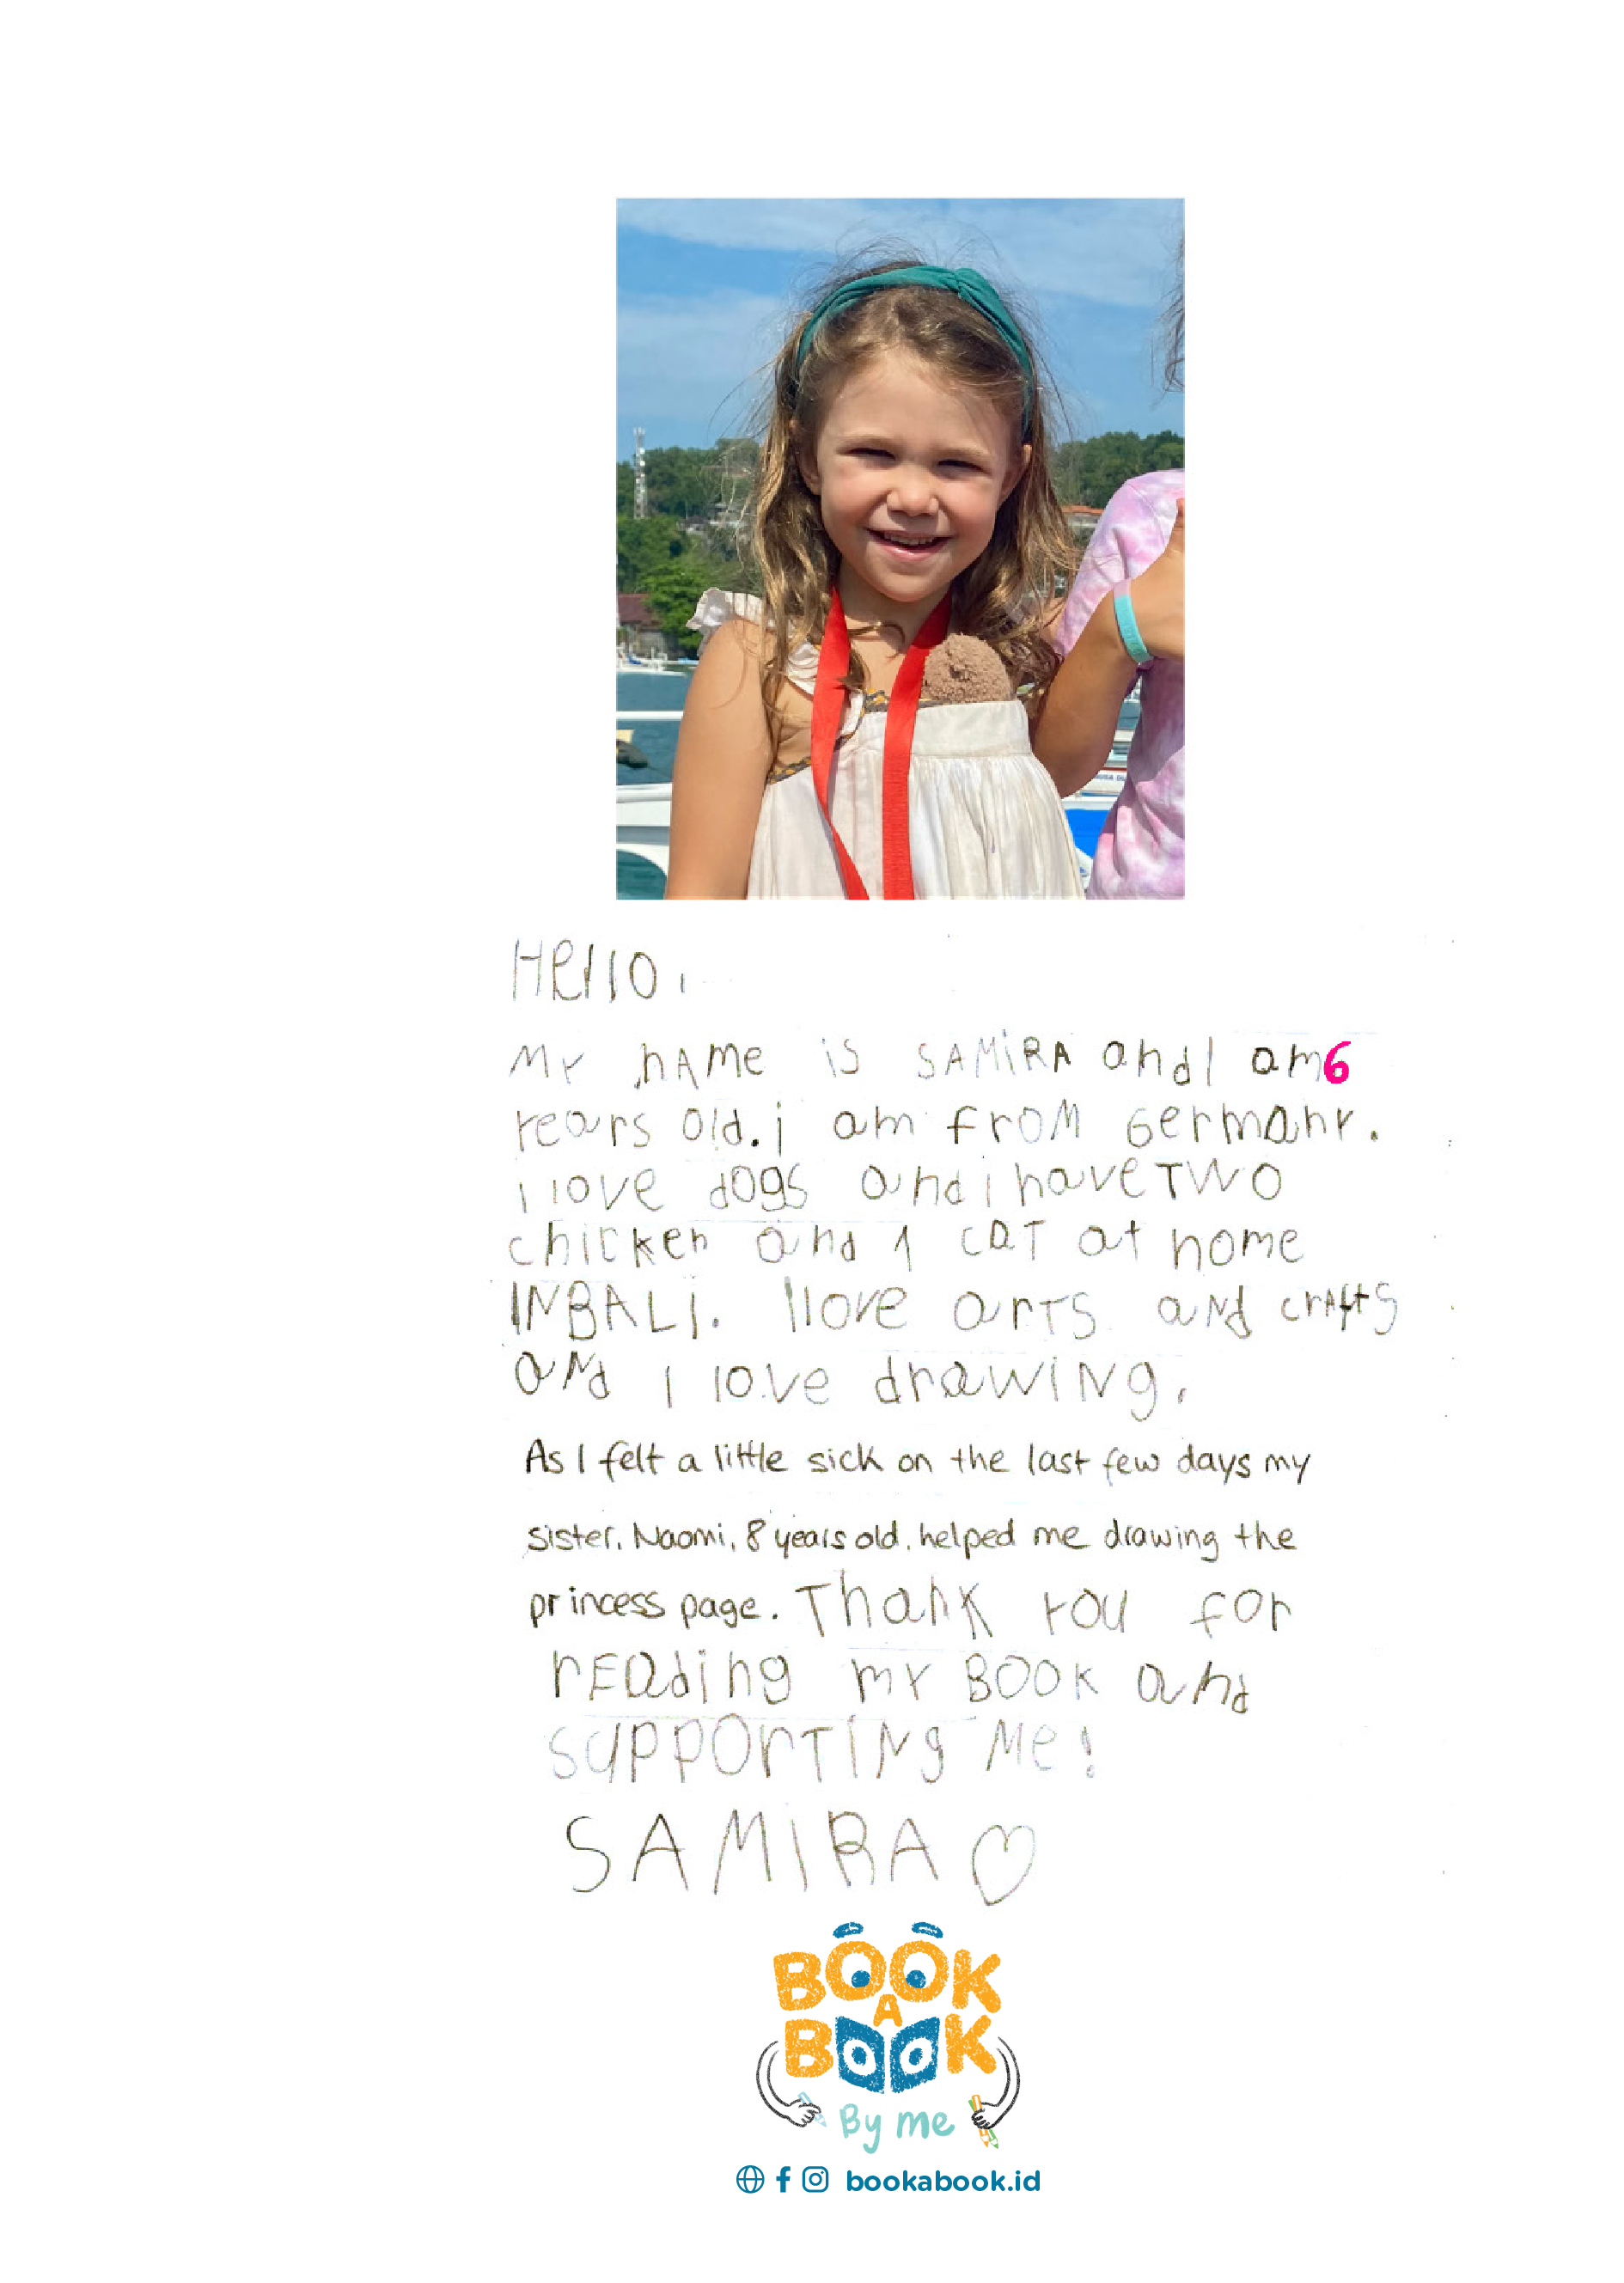 Hello,
My nAme is SAMiRA and I am 6
Years old. i am froM Germany.
i love dogs and i have TWO
chicken and 1 CAT at home
INBALi. I love arTS and crAftS
aNd I love drawiNg.
As I felt a little sick on the last few days my
sister, Naomi, 8 years old, helped me drawing the
princess page. Thank You for
rEading my BOOK and
supporTINg Me!
SAMIRA
BOOK
A
BOOK
By me
bookabook.id